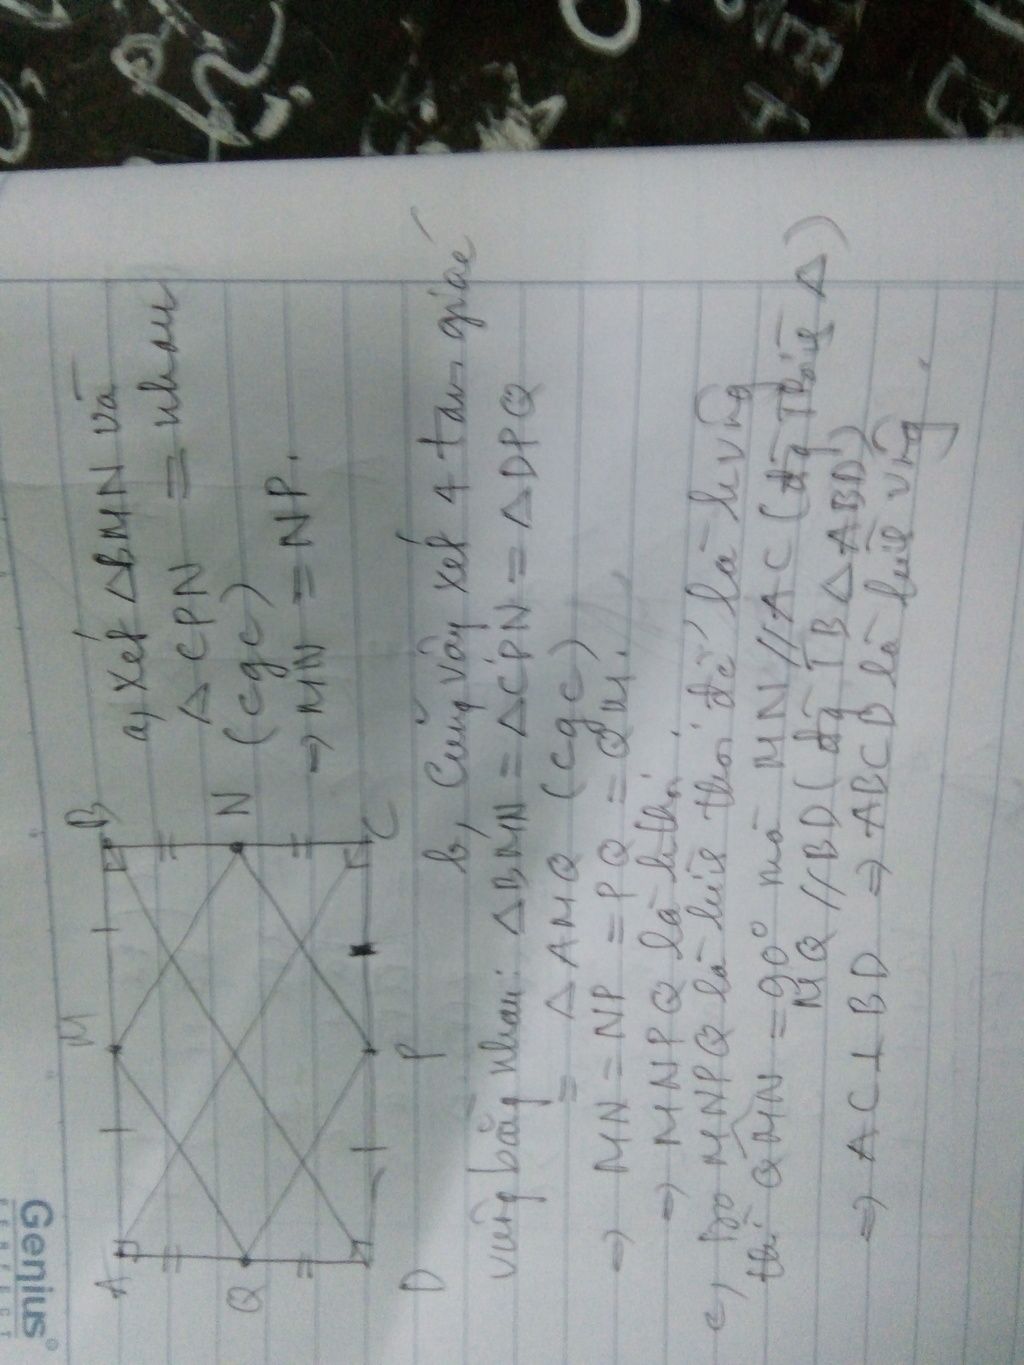 Genius
PERFECT
A
M
B
Q
N
D
P
C
a, Xét △BMN và
△CPN = nhau
(cgc)
⇒ MN = NP.
b, Cũng vậy xét 4 tam giác
vuông bằng nhau: △BMN = △CPN = △DPQ
= △AMQ (cgc)
⇒ MN = NP = PQ = QM.
⇒ MNPQ là hthoi.
c, Do MNPQ là hình thoi để là hvuông
thì QMN = 90° mà MN // AC (đg TBình △)
MQ // BD (đg TB △ABD)
⇒ AC ⊥ BD ⇒ ABCD là hình vuông.